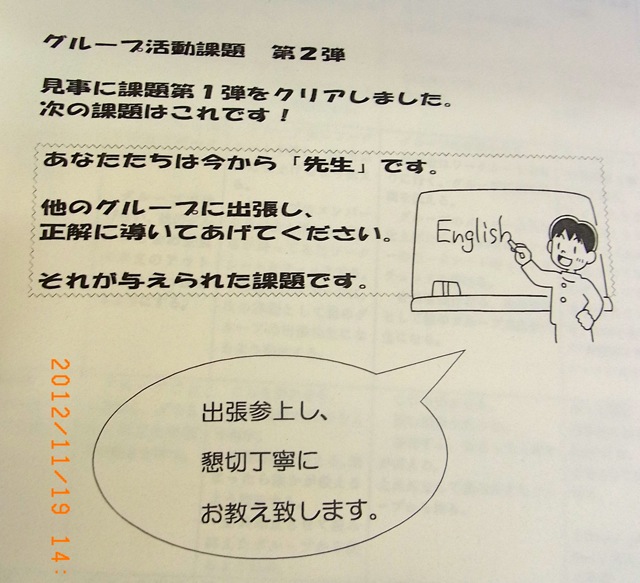 グループ活動課題　第2弾
見事に課題第1弾をクリアしました。
次の課題はこれです！
あなたたちは今から「先生」です。
他のグループに出張し、
正解に導いてあげてください。
それが与えられた課題です。
English
出張参上し、
懇切丁寧に
お教え致します。
2012/11/19 14: